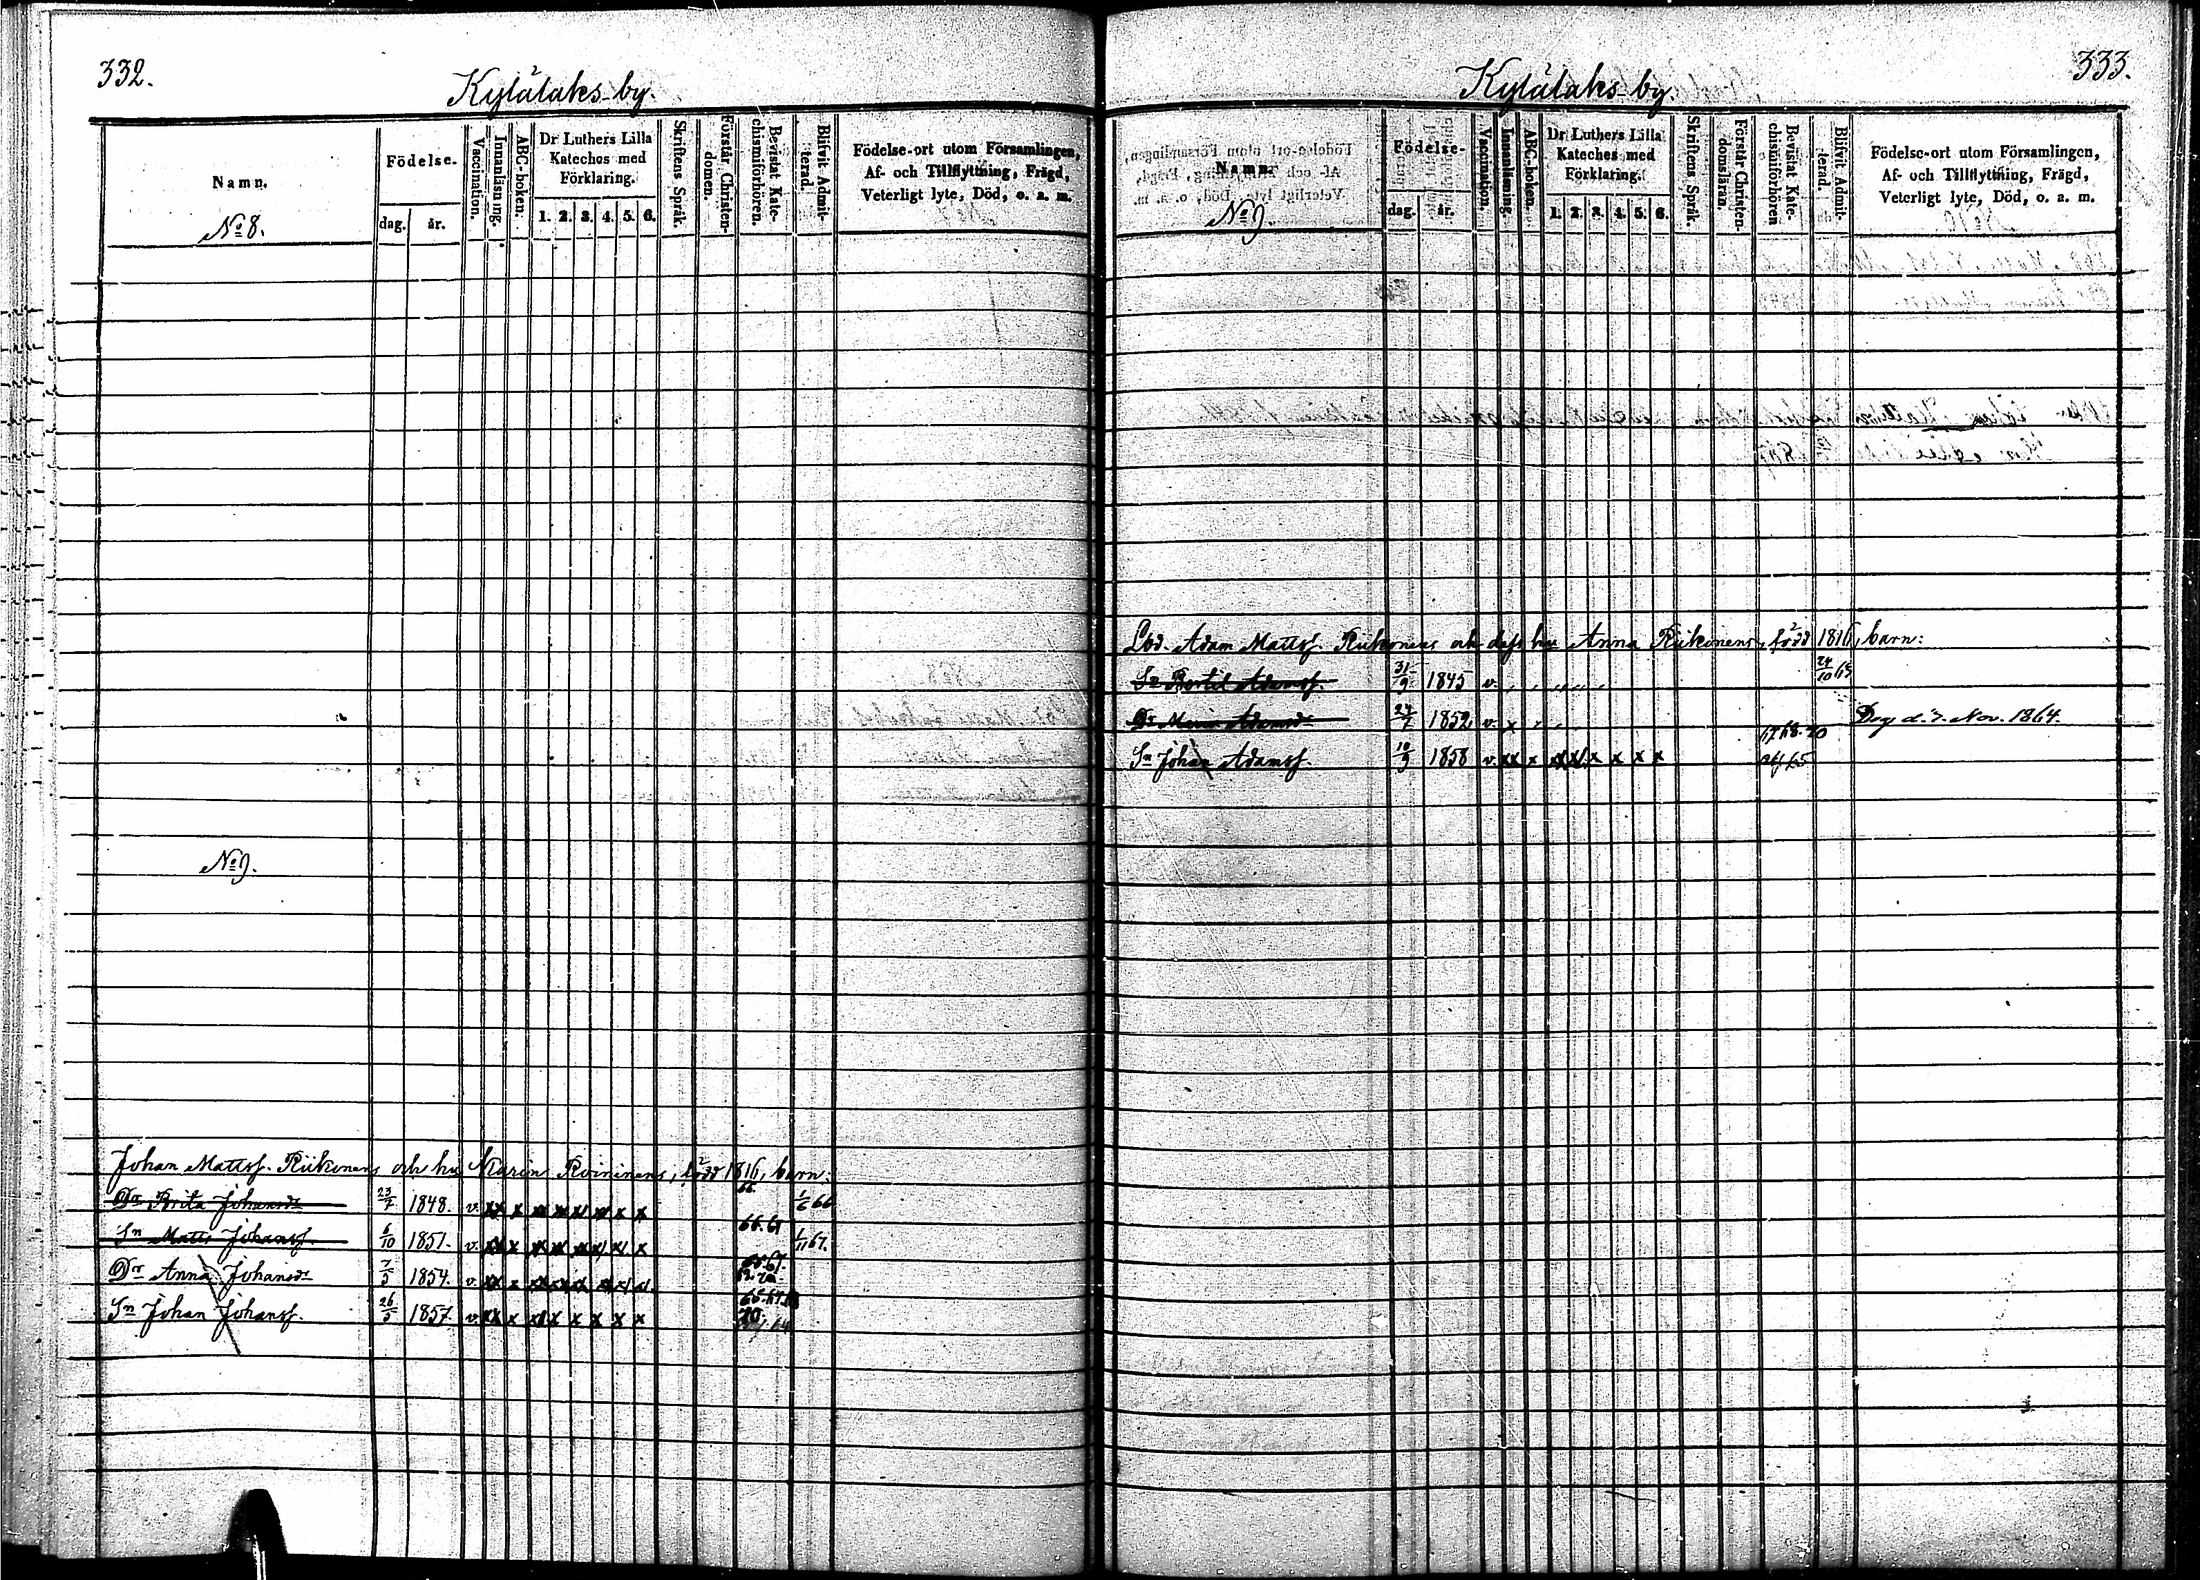 332.
Kylälaks by.
Namn.
No 8.
Födelse.
dag.
år.
Vaccination.
Innanläsning.
ABC-boken.
Dr Luthers Lilla
Kateches med
Förklaring.
1. 2. 3. 4. 5. 6.
Skriftens Språk.
Förstår Christen-
domen.
Bevistat Kate-
chismiförhören.
Blifvit Admit-
terad.
Födelse-ort utom Församlingen,
Af- och Tillflyttning, Frägd,
Veterligt lyte, Död, o. a. m.
No 9.
Johan Mattss. Riikonens och hu Karin Roininens, född 1816, barn:
Dr Brita Johansdr 23/7 1848. v. xx x x x x x x x 66. 1/6 66
Sn Matts Johanss. 6/10 1851. v. xx x x x x x x x 66. 67 1/11 67.
Dr Anna Johansdr 7/5 1854. v. xx x x x x x x x
Sn Johan Johanss. 26/5 1857. v. xx x x x x x x x 70
333.
Kylälaks by.
Namn.
No 9.
Födelse.
dag.
år.
Vaccination.
Innanläsning.
ABC-boken.
Dr Luthers Lilla
Kateches med
Förklaring.
1. 2. 3. 4. 5. 6.
Skriftens Språk.
Förstår Christen-
domsläran.
Bevistat Kate-
chismiförhören
Blifvit Admit-
terad.
Födelse-ort utom Församlingen,
Af- och Tillflyttning, Frägd,
Veterligt lyte, Död, o. a. m.
Lbd. Adam Mattss. Riikonens och dess hu Anna Riikonens, född 1816, barn:
Sn Bertil Adamss. 31/9 1845 v. 24/10 65
Dr Maria Adamsdr 24/7 1852 v. x Dog d. 7. Nov. 1864.
Sn Johan Adamss. 10/9 1858 v. xx x x x x x x x 68. 70
65